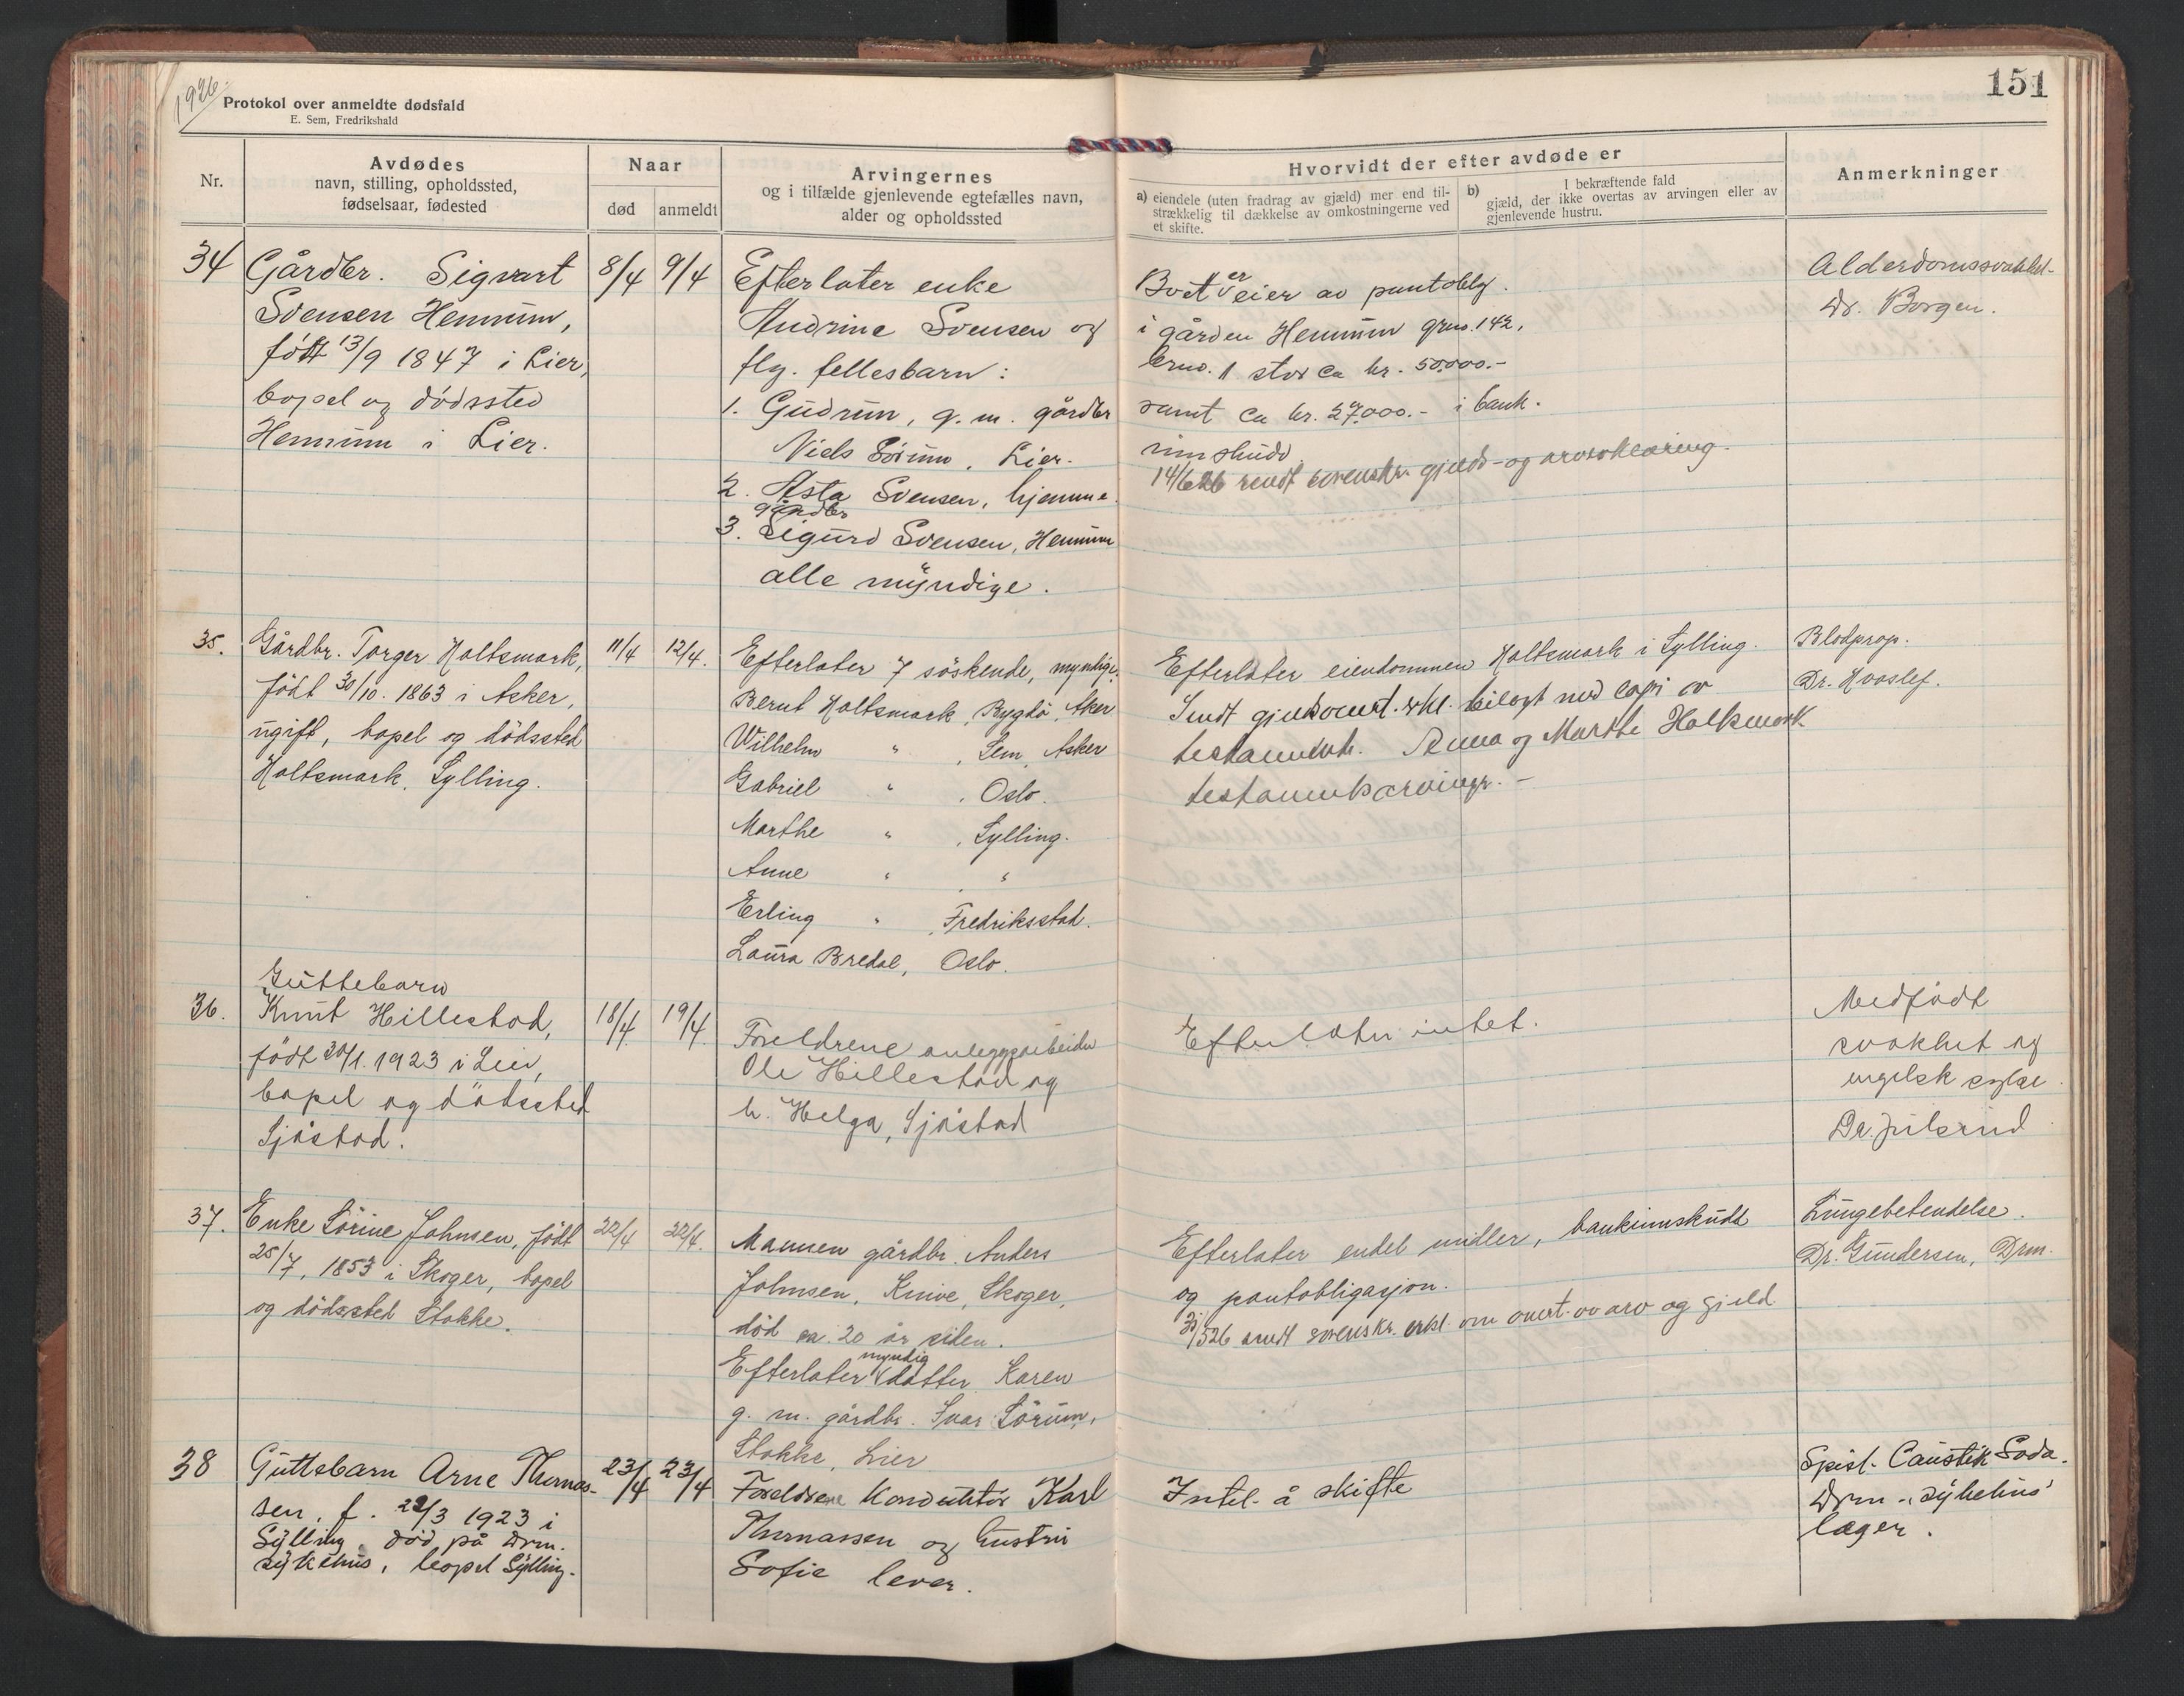 1926.
151
Protokol over anmeldte dødsfald
E. Sem, Fredrikshald
Nr.
Avdødes
navn, stilling, opholdssted,
fødselsaar, fødested
Naar
død
anmeldt
Arvingernes
og i tilfælde gjenlevende egtefælles navn,
alder og opholdssted
Hvorvidt der efter avdøde er
a) eiendele (uten fradrag av gjæld) mer end til-
strækkelig til dækkelse av omkostningerne ved
et skifte.
b) I bekræftende fald
gjæld, der ikke overtas av arvingen eller av
gjenlevende hustru.
Anmerkninger
34
Gårdbr. Sigvart
Svensen Hennum,
født 13/9 1847 i Lier,
bopel og dødssted
Hennum i Lier.
8/4
9/4
Efterlater enke
Andrine Svensen og
flg. fellesbarn:
1. Gudrun, g. m. gårdbr
Niels Sørum, Lier.
2. Asta Svensen, hjemme.
gårdbr
3. Sigurd Svensen, Hennum
alle myndige.
Boet er eier av pantoblg.
i gården Hennum grno. 142,
brno. 1 stor ca kr. 50.000.-
samt ca kr. 27.000.- i bank.
innskudd.
14/6 26 sendt sorenskr. gjelds- og arvserklæring.
Alderdomssvakhet.
Dr. Borgen.
35.
Gårdbr. Torger Holtsmark,
født 30/10. 1863 i Asker,
ugift, bopel og dødssted
Holtsmark, Sylling.
11/4
12/4.
Efterlater 7 søskende, myndige.
Bernt Holtsmark, Bygdø, Aker
Wilhelm " , Sem, Asker
Gabriel " , Oslo.
Marthe " , Sylling.
Anne " , "
Erling " , Fredriksstad.
Laura Bredal, Oslo.
Efterlater eiendommen Holtsmark i Sylling.
Sendt gjeldsovert. erkl. bilagt med kopi av
testamente. Anna og Marthe Holtsmark
testamentsarvinger. -
Blodprop.
Dr. Hvoslef.
36.
Guttebarn
Knut Hillestad,
født 30/1. 1923 i Lier,
bopel og dødssted
Sjåstad.
18/4.
19/4.
Foreldrene anleggsarbeider
Ole Hillestad og
h. Helga, Sjåstad
Efterlater intet.
Medfødt
svakhet og
engelsk syke.
Dr. Julsrud
37.
Enke Sørine Johnsen, født
25/7. 1853 i Skoger, bopel
og dødssted Stokke.
22/4
22/4.
Mannen gårdbr. Anders
Johnsen, Knive, Skoger,
død ca. 20 år siden.
Efterlater myndig datter Karen
g. m. gårdbr. Ivar Sørum,
Stokke, Lier
Efterlater endel midler, bankinnskudd
og pantobligasjon.
31/5 26 sendt sorenskr. erkl. om overt. av arv og gjeld.
Lungebetendelse.
Dr. Gundersen, Drm.
38
Guttebarn Arne Thomas-
sen, f. 22/3 1923 i
Sylling, død på Drm.
sykehus, bopel Sylling.
23/4
23/4
Foreldrene Konduktør Karl
Thomassen og hustru
Sofie lever.
Intet å skifte
Spist Caustik Soda.
Drm. sykehus'
læger.